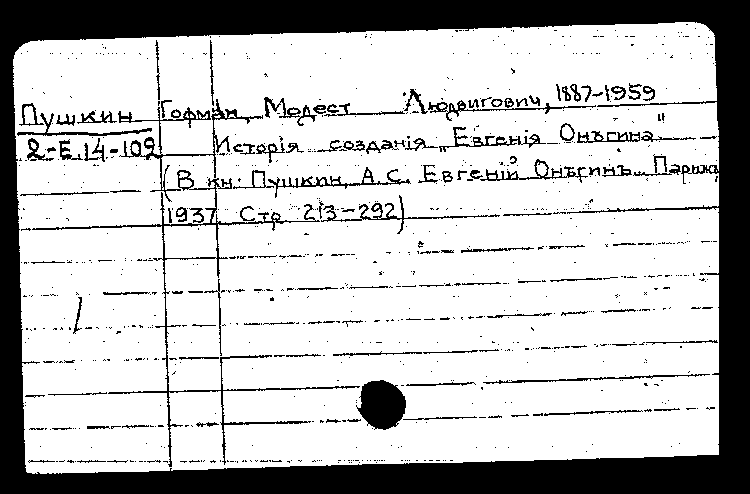 Пушкин Гофман, Модест Людвигович, 1887-1959
2-Е.14-102 Исторія созданія „Евгенія Онѣгина"
(В кн: Пушкин, А.С. Евгеній Онѣгинъ. Париж,
1937 Стр 213-292)